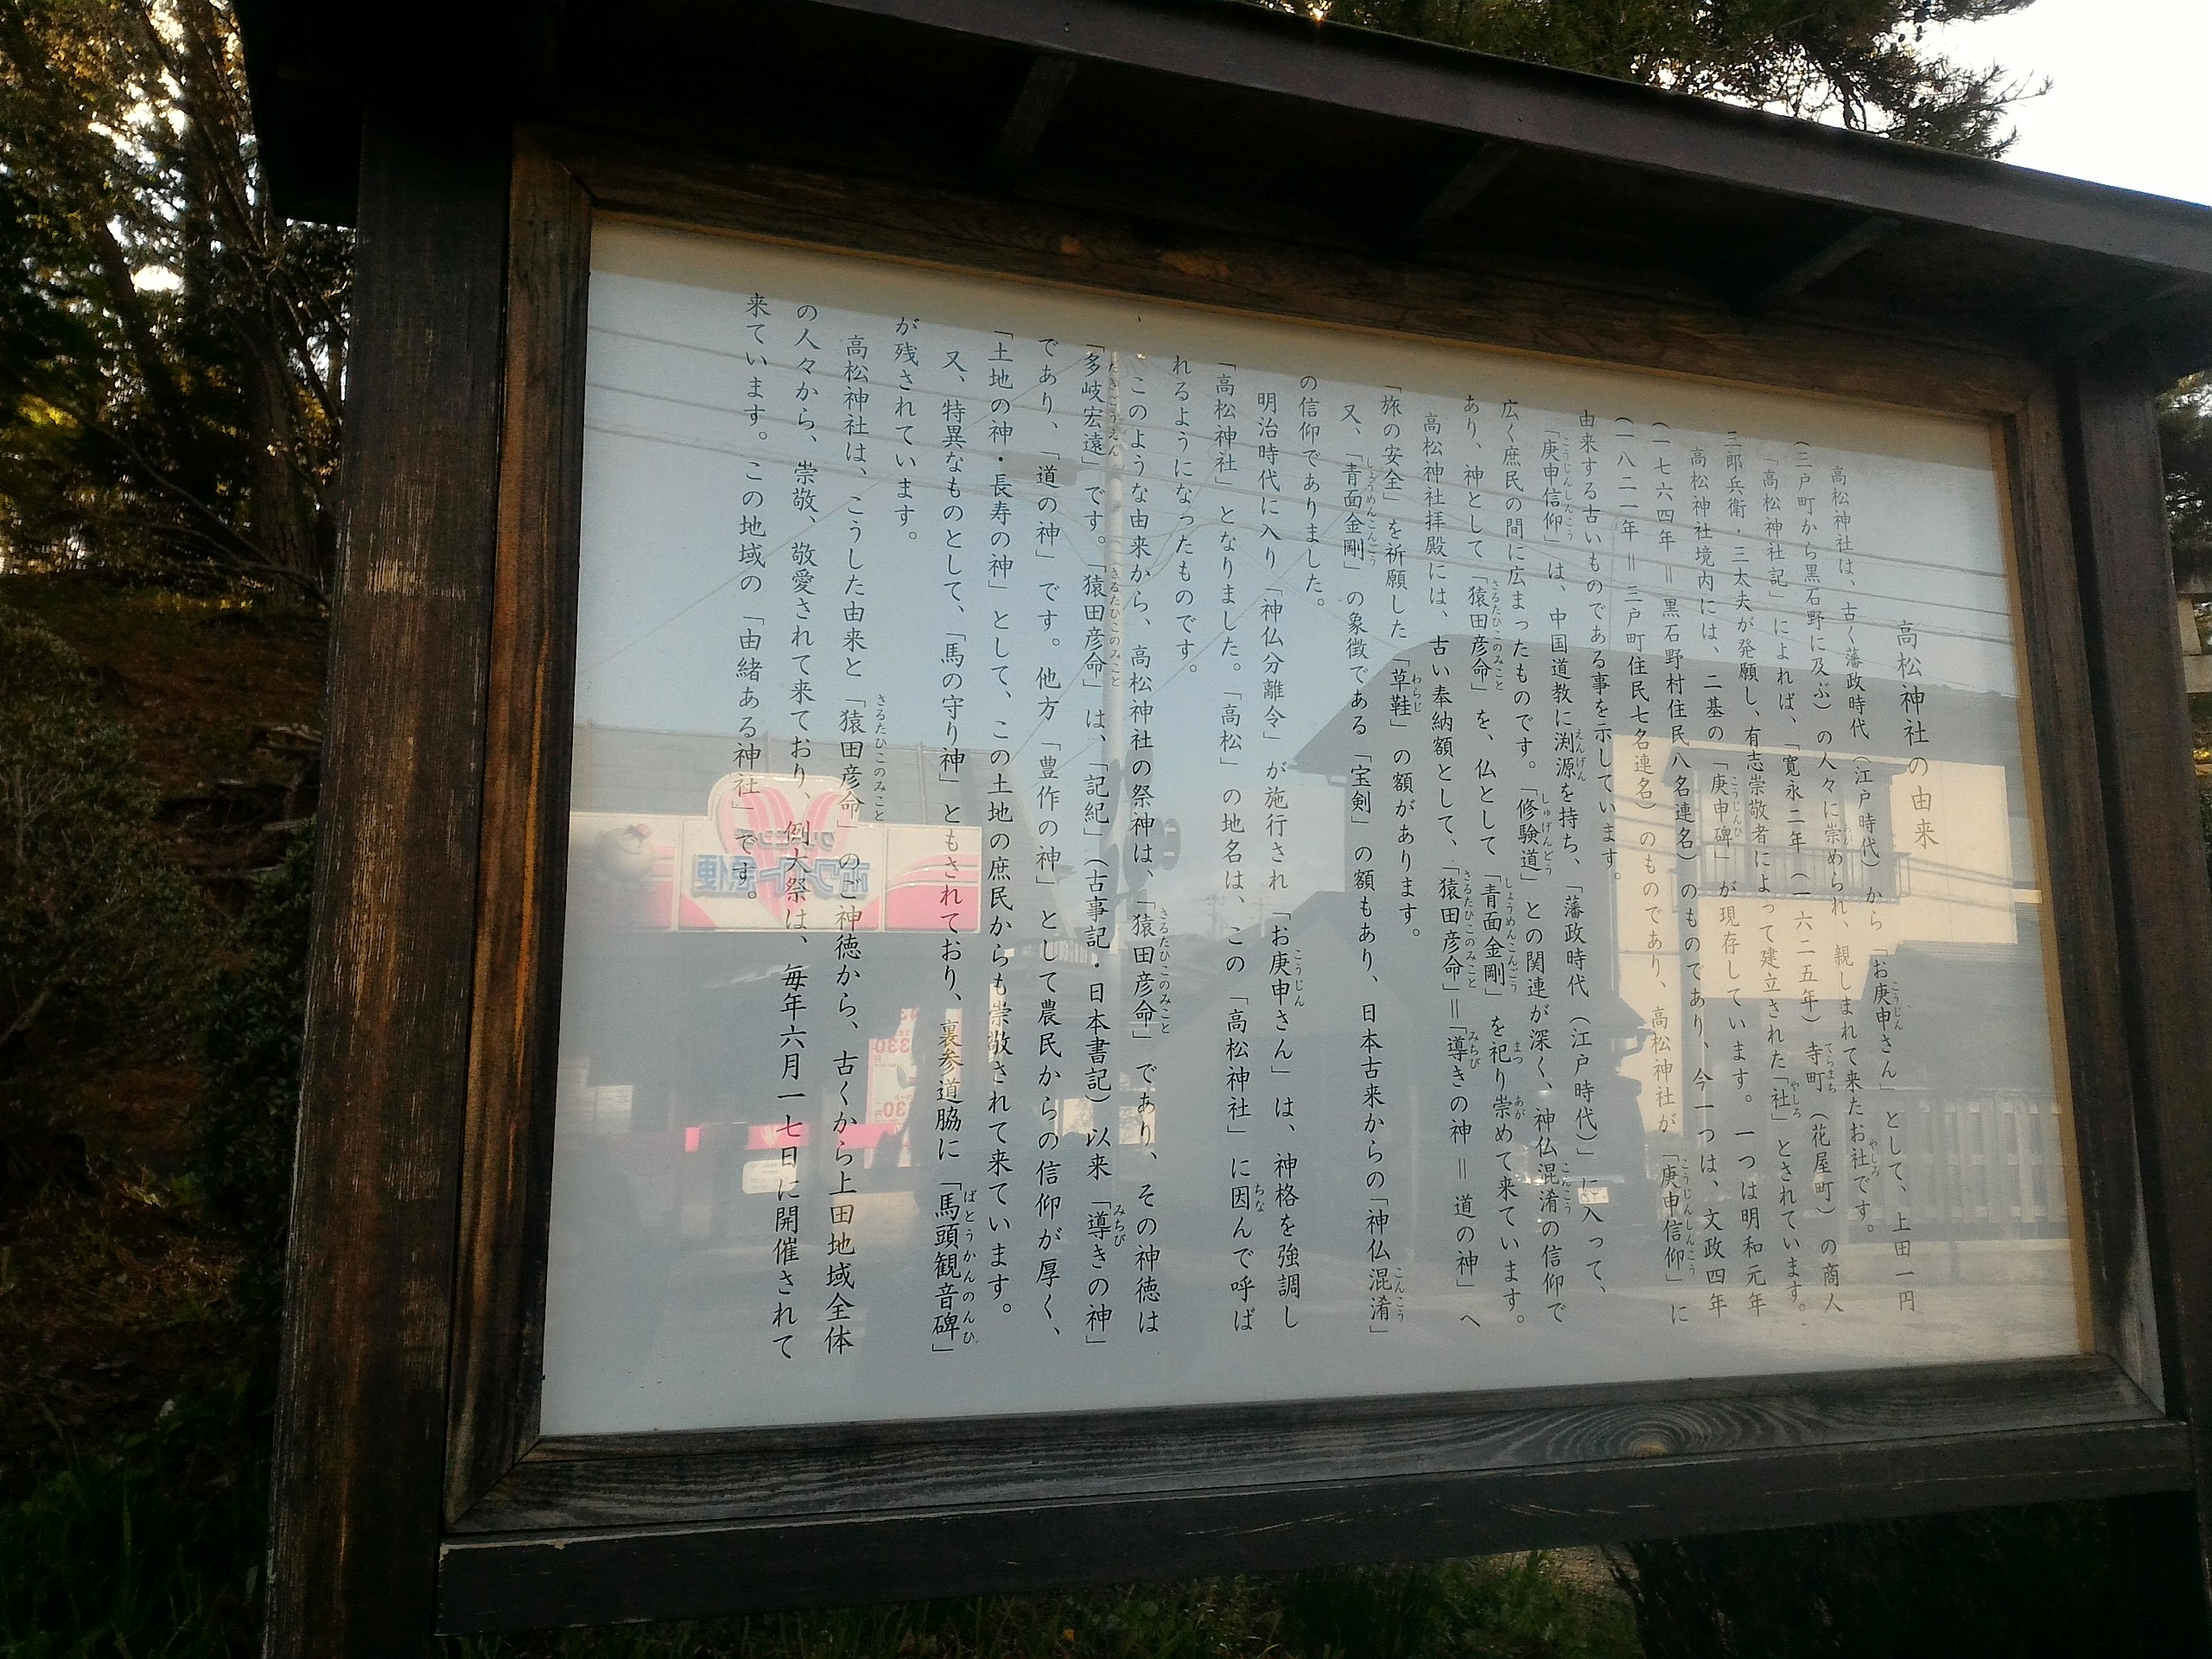 高松神社の由来
高松神社は、古く藩政時代（江戸時代）から「お庚申さん」として、上田一円
（三戸町から黒石野に及ぶ）の人々に崇められ、親しまれて来たお社です。
「高松神社記」によれば、「寛永二年（一六二五年）寺町（花屋町）の商人
三郎兵衛・三太夫が発願し、有志崇敬者によって建立された「社」とされています。
高松神社境内には、二基の「庚申碑」が現存しています。一つは明和元年
（一七六四年＝黒石野村住民八名連名）のものであり、今一つは、文政四年
（一八二一年＝三戸町住民七名連名）のものであり、高松神社が「庚申信仰」に
由来する古いものである事を示しています。
「庚申信仰」は、中国道教に渕源を持ち、「藩政時代（江戸時代）」に入って、
広く庶民の間に広まったものです。「修験道」との関連が深く、神仏混淆の信仰で
あり、神として「猿田彦命」を、仏として「青面金剛」を祀り崇めて来ています。
高松神社拝殿には、古い奉納額として、「猿田彦命」＝「導きの神＝道の神」へ
「旅の安全」を祈願した「草鞋」の額があります。
又、「青面金剛」の象徴である「宝剣」の額もあり、日本古来からの「神仏混淆」
の信仰でありました。
明治時代に入り「神仏分離令」が施行され「お庚申さん」は、神格を強調し
「高松神社」となりました。「高松」の地名は、この「高松神社」に因んで呼ば
れるようになったものです。
このような由来から、高松神社の祭神は、「猿田彦命」であり、その神徳は
「多岐宏遠」です。「猿田彦命」は、「記紀」（古事記・日本書記）以来「導きの神」
であり、「道の神」です。他方「豊作の神」として農民からの信仰が厚く、
「土地の神・長寿の神」として、この土地の庶民からも崇敬されて来ています。
又、特異なものとして、「馬の守り神」ともされており、裏参道脇に「馬頭観音碑」
が残されています。
高松神社は、こうした由来と「猿田彦命」のご神徳から、古くから上田地域全体
の人々から、崇敬、敬愛されて来ており、例大祭は、毎年六月一七日に開催されて
来ています。この地域の「由緒ある神社」です。